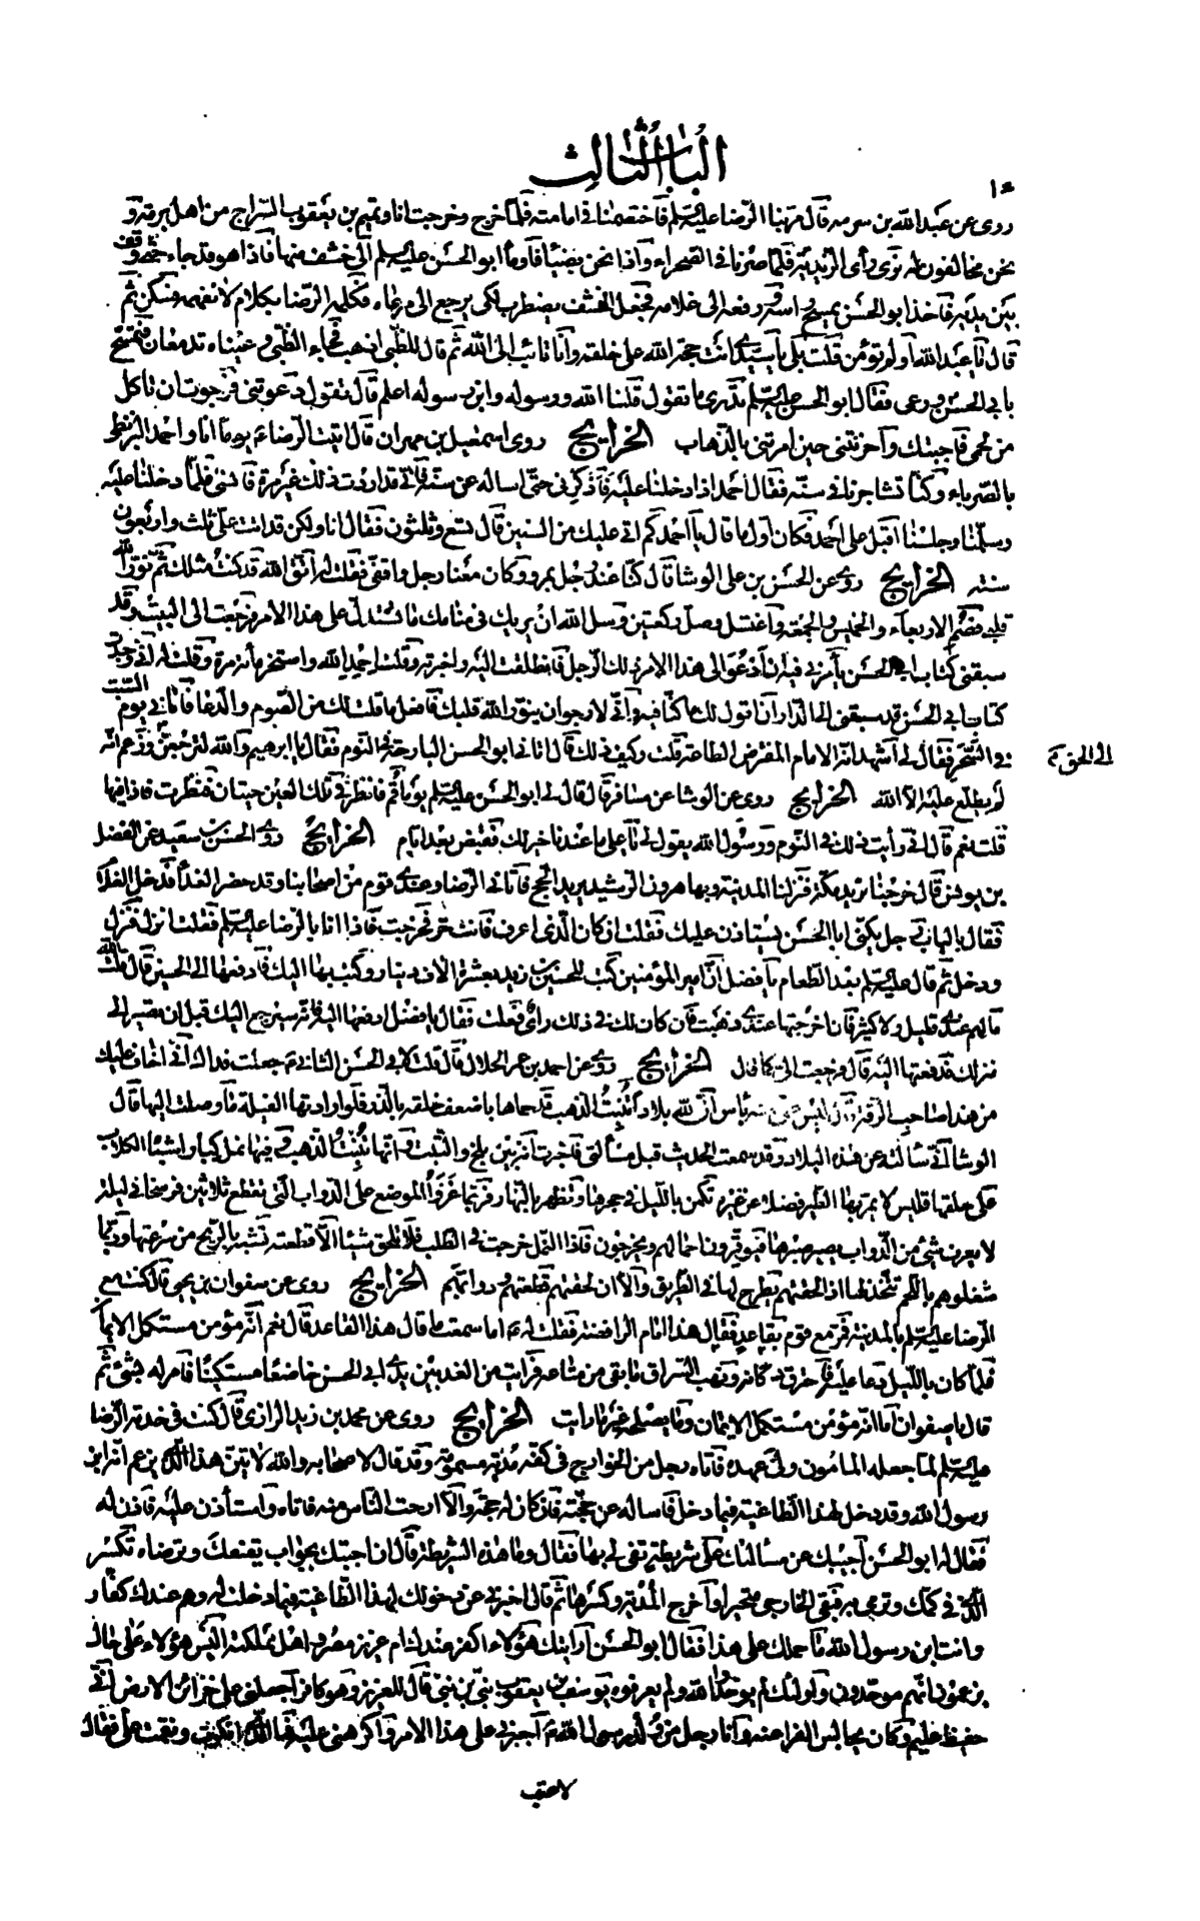 الباب الثالث
روى عن عبد الله بن سومه قال مر بنا الرضا عليه السلم فاختصمنا في امامته فلما خرج وخرجت انا وتميم بن يعقوب السراج من اهل برمة و
نحن مخالفون له نرى رأى الزيدية فلما صرنا في الصحراء واذا نحن بضباء فاومأ ابو الحسن عليه السلم الى خشف منها فاذا هو قد جاء حتى وقف
بين يديه فاخذ ابو الحسن يمسح راسه ودفعه الى غلامه فجعل الخشف يضطرب لكي يرجع الى مرعاه فكلمه الرضا بكلام لا نفهمه فسكن ثم
قال يا عبد الله اولم تؤمن قلت بلى يا سيدي انت حجة الله على خلقه وانا تائب الى الله ثم قال للظبي اذهب فجاء الظبي وعيناه تدمعان فتمسح
بابي الحسن ورعى فقال ابو الحسن عليه السلم تدري ما تقول قلنا الله ورسوله وابن رسوله اعلم قال تقول دعوتني فرجوت ان تاكل
من لحمي فاجبتك واحزنتني حين امرتني بالذهاب الخرايج روى اسمعيل بن مهران قال اتيت الرضا ع يوما انا واحمد البزنطي
بالصرياء وكنا تشاجرنا في سنه فقال احمد اذا دخلنا عليه فاذكرني حتى اساله عن سنه فاني قد اردت ذلك غير مرة فانسى فلما دخلنا عليه
وسلمنا وجلسنا اقبل على احمد فكان اول ما قال يا احمد كم اتى عليك من السنين قال تسع وثلثون فقال انا ولكن قد اتت على ثلث واربعون
سنه الخرايج روى عن الحسن بن علي الوشا قال كنا عند رجل بمرو وكان معنا رجل واقفي فقلت له اتق الله قد كنت مثلك ثم نور الله
قلبي فصم الاربعاء والخميس والجمعة واغتسل وصل ركعتين وسل الله ان يريك في منامك ما تستدل على هذا الامر فرجعت الى البيت وقد
سبقني كتاب ابي الحسن يأمرني فيه ان ادعو الى هذا الامر ذلك الرجل فانطلقت اليه واخبرته وقلت احمد الله واستخره مأة مرة وقلت له اني وجدت
كتاب ابي الحسن قد سبقني الى الدار ان اقول لك ما كنا فيه واني لارجو ان ينور الله قلبك فافعل ما قلت لك من الصوم والدعا فاتاني يوم السبت
في السحر فقال لي اشهد انه الامام المفترض الطاعة قلت وكيف ذلك قال اتاني ابو الحسن البارحة في النوم فقال يا ابرهيم والله لترجعن وزعم انه
الى الحق
لم يطلع عليه الا الله الخرايج روى عن الوشا عن مسافر قال قال لي ابو الحسن عليه السلم يوما قم فانظر في تلك العين حيتان فنظرت فاذا فيها
قلت نعم قال اني رأيت ذلك في النوم ورسول الله يقول لي يا علي ما عندنا خير لك فقبض بعد ايام الخرايج روى الحسن بن سعيد عن الفضل
بن يونس قال خرجنا نريد مكة فنزلنا المدينة وبها هرون الرشيد يريد الحج فاتاني الرضا وعندي قوم من اصحابنا وقد حضر الغدأ فدخل الغلام
فقال بالباب رجل يكنى ابا الحسن يستاذن عليك فقلت ان كان الذي اعرف فانت حر فخرجت فاذا انا بالرضا عليه السلم فقلت انزل فنزل
ودخل ثم قال عليه السلم بعد الطعام يا فضل ان امير المؤمنين كتب للحسين بن زيد بعشرة الاف دينار وكتب بها اليك فادفعها الى الحسين قال قلت والله
مالهم عندي قليل ولا كثير فان اخرجتها عندي ذهبت فان كان لك في ذلك رأي فعلت فقال يا فضل ادفعها اليه فانه سيرجع اليك قبل ان تصير الى
منزلك فدفعتها اليه قال فرجعت الي كما قال الخرايج روى عن احمد بن عمر الحلال قال قلت لابي الحسن الثاني ع جعلت فداك اني اخاف عليك
من هذا صاحب الرقة قال ليس علي منه باس ان لله بلاد تنبت الذهب قد حماها باضعف خلقه بالذر فلو ارادتها الفيلة ما وصلت اليها قال
الوشا اني سالته عن هذه البلاد وقد سمعت الحديث قبل مسألتي فاخبرت انه بين بلخ والتبت وانها تنبت الذهب وفيها نمل كبار اشباه الكلاب
على خلقها فليس لا يمر بها الطير فضلا عن غيره تكمن بالليل في جحرها وتظهر بالنهار فربما غزوا الموضع على الدواب التي تقطع ثلاثين فرسخا في ليلة
لا يعرف شئ من الدواب يصبر صبرها فيوقرون احمالهم ويخرجون فاذا النمل خرجت في الطلب فلا تلحق شيئا الا قطعته تشبه بالريح من سرعتها وربما
شغلوهم باللحم تتخذ لها اذا لحقتهم يطرح لها في الطريق والا ان لحقتهم قطعتهم ودوابهم الخرايج روى عن صفوان بن يحيى قال كنت مع
الرضا عليه السلم بالمدينة فمر مع قوم بقاعد فقال هذا امام الرافضة فقلت له ع اما سمعت ما قال هذا القاعد قال نعم انه مؤمن مستكمل الايمان
فلما كان بالليل دعا عليه فاحترق دكانه ونهب السراق ما بقى من متاعه فرايت من الغد بين يدي ابي الحسن خاضعا مستكينا فامر له بشئ ثم
قال يا صفوان اما انه مؤمن مستكمل الايمان وما يصلحه غير ما رايت الخرايج روى عن محمد بن زيد الرازي قال كنت في خدمة الرضا
عليه السلم لما جعله المامون ولي عهده فاتاه رجل من الخوارج في كفه مدية مسمومة وقد قال لاصحابه والله لاتين هذا الذي يزعم انه ابن
رسول الله وقد دخل لهذا الطاغية فيما دخل فاساله عن حجته فان كان له حجة والا ارحت الناس منه فاتاه واستأذن عليه فاذن له
فقال له ابو الحسن اجيبك عن مسالتك على شريطة تفى لي بها فقال وما هذه الشريطة قال ان اجبتك بجواب يقنعك وترضاه تكسر
الذي في كمك وترمي به فبقي الخارجي متحيرا واخرج المدية وكسرها ثم قال اخبرني عن دخولك لهذا الطاغية فيما دخلت له وهم عندك كفار
وانت ابن رسول الله ما حملك على هذا فقال ابو الحسن ارايتك هؤلاء اكفر عندك ام عزيز مصر واهل مملكته اليس هؤلاء على حال
يزعمون انهم موحدون واولئك لم يوحدوا الله ولم يعرفوه يوسف بن يعقوب نبي بن نبي قال للعزيز وهو كافر اجعلني على خزائن الارض اني
حفيظ عليم وكان يجالس الفراعنه وانا رجل من ولد رسول الله ع اجبرني على هذا الامر واكرهني عليه فما الذي انكرت ونقمت علي فقال
لا عتب